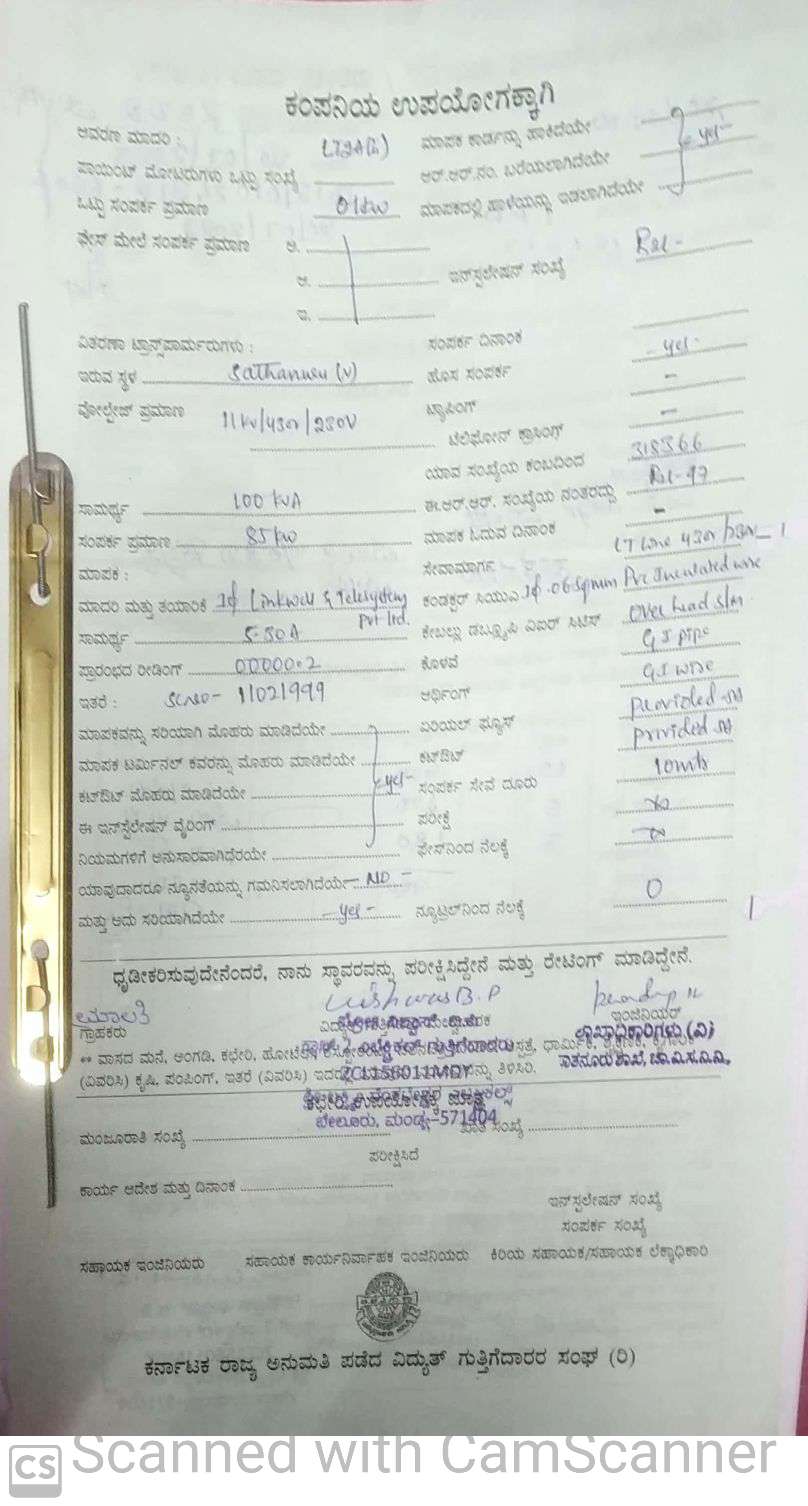 ಕಂಪನಿಯ ಉಪಯೋಗಕ್ಕಾಗಿ
ಆವರಣ ಮಾದರಿ : ಮಾಪಕ ಕಾರ್ಡನ್ನು ಹಾಕಿದೆಯೇ
ಪಾಯಿಂಟ್ ಮೋಟರುಗಳು ಒಟ್ಟು ಸಂಖ್ಯೆ ಆರ್.ಆರ್.ನಂ. ಬರೆಯಲಾಗಿದೆಯೇ yes
ಒಟ್ಟು ಸಂಪರ್ಕ ಪ್ರಮಾಣ 01kw ಮಾಪಕದಲ್ಲಿ ಹಾಳೆಯನ್ನು ಇಡಲಾಗಿದೆಯೇ
ಫೇಸ್ ಮೇಲೆ ಸಂಪರ್ಕ ಪ್ರಮಾಣ ಅ.
ಆ. ಇನ್‌ಸ್ಟಲೇಷನ್ ಸಂಖ್ಯೆ
ಇ.
ವಿತರಣಾ ಟ್ರಾನ್ಸ್‌ಪಾರ್ಮರುಗಳು : ಸಂಪರ್ಕ ದಿನಾಂಕ
ಇರುವ ಸ್ಥಳ Sathanuru (v) ಹೊಸ ಸಂಪರ್ಕ - yes -
ವೋಲ್ಟೇಜ್ ಪ್ರಮಾಣ 11kv/430v/230V ಟ್ಯಾಪಿಂಗ್ -
ಟೆಲಿಫೋನ್ ಕ್ರಾಸಿಂಗ್ -
ಯಾವ ಸಂಖ್ಯೆಯ ಕಂಬದಿಂದ 318366
ಸಾಮರ್ಥ್ಯ 100 kVA ಈ.ಆರ್.ಆರ್. ಸಂಖ್ಯೆಯ ನಂತರದ್ದು
ಸಂಪರ್ಕ ಪ್ರಮಾಣ 85kw ಮಾಪಕ ಓದುವ ದಿನಾಂಕ -
ಮಾಪಕ : ಸೇವಾಮಾರ್ಗ LT Line
ಮಾದರಿ ಮತ್ತು ತಯಾರಿಕೆ 1ϕ Linkwell & Telesystems Pvt ltd. ಕಂಡಕ್ಟರ್ ಸಿಯುವಿ 1ϕ 06sqmm Pvc Insulated wire
ಸಾಮರ್ಥ್ಯ 5-30A ಕೇಬಲ್ಲು ಡಬ್ಲ್ಯೂಪಿ ಏಐರ್ ಸಿಟಿಸ್ over head s/m
ಪ್ರಾರಂಭದ ರೀಡಿಂಗ್ 000000.2 ಕೊಳವೆ GI pipe
ಇತರೆ : SLNO- 11021999 ಆರ್ಥಿಂಗ್ GI wire
ಮಾಪಕವನ್ನು ಸರಿಯಾಗಿ ಮೊಹರು ಮಾಡಿದೆಯೇ ಏರಿಯಲ್ ಫ್ಯೂಸ್ provided
ಮಾಪಕ ಟರ್ಮಿನಲ್ ಕವರನ್ನು ಮೊಹರು ಮಾಡಿದೆಯೇ ಕಟ್‌ಔಟ್ provided
ಕಟ್‌ಔಟ್ ಮೊಹರು ಮಾಡಿದೆಯೇ yes - ಸಂಪರ್ಕ ಸೇವೆ ದೂರು 10mts
ಈ ಇನ್‌ಸ್ಟಲೇಷನ್ ವೈರಿಂಗ್ ಪರೀಕ್ಷೆ
ನಿಯಮಗಳಿಗೆ ಅನುಸಾರವಾಗಿದೆರಯೇ ಫೇಸ್‌ನಿಂದ ನೆಲಕ್ಕೆ
ಯಾವುದಾದರೂ ನ್ಯೂನತೆಯನ್ನು ಗಮನಿಸಲಾಗಿದೆಯೇ - NO -
ಮತ್ತು ಅದು ಸರಿಯಾಗಿದೆಯೇ - yes - ನ್ಯೂಟ್ರಲ್‌ನಿಂದ ನೆಲಕ್ಕೆ 0
ಧೃಡೀಕರಿಸುವುದೇನೆಂದರೆ, ನಾನು ಸ್ಥಾವರವನ್ನು ಪರೀಕ್ಷಿಸಿದ್ದೇನೆ ಮತ್ತು ರೇಟಿಂಗ್ ಮಾಡಿದ್ದೇನೆ.
ಮಾಲತಿ Vishwas B.P
ಗ್ರಾಹಕರು ಇಂಜಿನಿಯರ್
ಶಾಖಾಧಿಕಾರಿಗಳು (ವಿ)
** ವಾಸದ ಮನೆ, ಅಂಗಡಿ, ಕಛೇರಿ, ಹೋಟೆಲ್ ಧಾರ್ಮಿಕ
ಸಾತನೂರು ಶಾಖೆ, ಚಾ.ವಿ.ಸ.ನಿ.ನಿ.,
(ವಿವರಿಸಿ) ಕೃಷಿ, ಪಂಪಿಂಗ್, ಇತರೆ (ವಿವರಿಸಿ) 2CL156011MDY ತಿಳಿಸಿರಿ.
ಕಛೇರಿ ಉಪಯೋಗಕ್ಕೆ ಮಾತ್ರ
ಬೇಲೂರು, ಮಂಡ್ಯ-571404
ಮಂಜೂರಾತಿ ಸಂಖ್ಯೆ ಖಾತೆ ಸಂಖ್ಯೆ
ಪರೀಕ್ಷಿಸಿದೆ
ಕಾರ್ಯ ಆದೇಶ ಮತ್ತು ದಿನಾಂಕ
ಇನ್‌ಸ್ಟಲೇಷನ್ ಸಂಖ್ಯೆ
ಸಂಪರ್ಕ ಸಂಖ್ಯೆ
ಸಹಾಯಕ ಇಂಜಿನಿಯರು ಸಹಾಯಕ ಕಾರ್ಯನಿರ್ವಾಹಕ ಇಂಜಿನಿಯರು ಕಿರಿಯ ಸಹಾಯಕ/ಸಹಾಯಕ ಲೆಕ್ಕಾಧಿಕಾರಿ
ಕರ್ನಾಟಕ ರಾಜ್ಯ ಅನುಮತಿ ಪಡೆದ ವಿದ್ಯುತ್ ಗುತ್ತಿಗೆದಾರರ ಸಂಘ (ರಿ)
CS Scanned with CamScanner